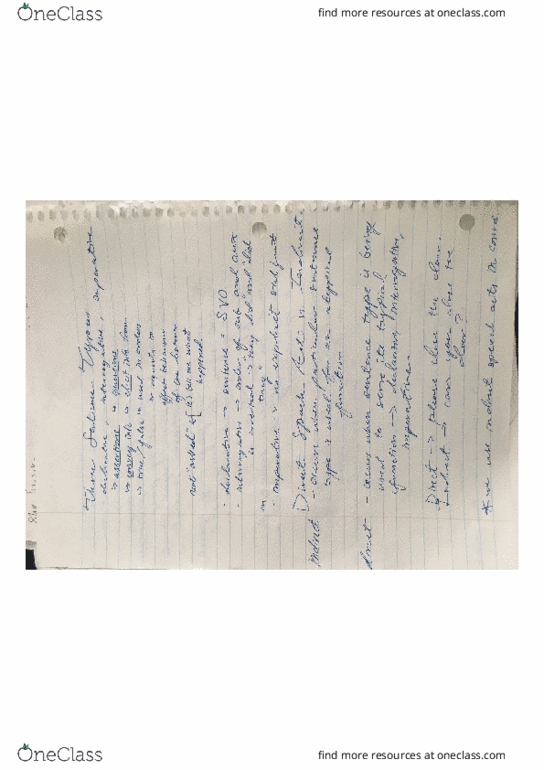 OneClass
find more resources at oneclass.com
Three Sentence Types
declarative, interrogative, imperative
→ assertions → questions
→ convey info → elicit info from
→ true/false → used in orders
→ results in
affect behaviour
of the hearer
not "asked" tell me what
happened
- declarative → sentence = SVO
- interrogative → order of sub and aux
is inverted → "why did" and "did
they"
- imperative = no explicit subject
Direct Speech Acts vs Indirect
indirect - occurs when particular sentence
type is used for an atypical
function
direct - occurs when sentence type is being
used to serve its typical
function → declarative, interrogative,
imperatives
Direct → please close the door.
Indirect → can you close the
door?
* we use indirect speech acts in conv.
OneClass
find more resources at oneclass.com